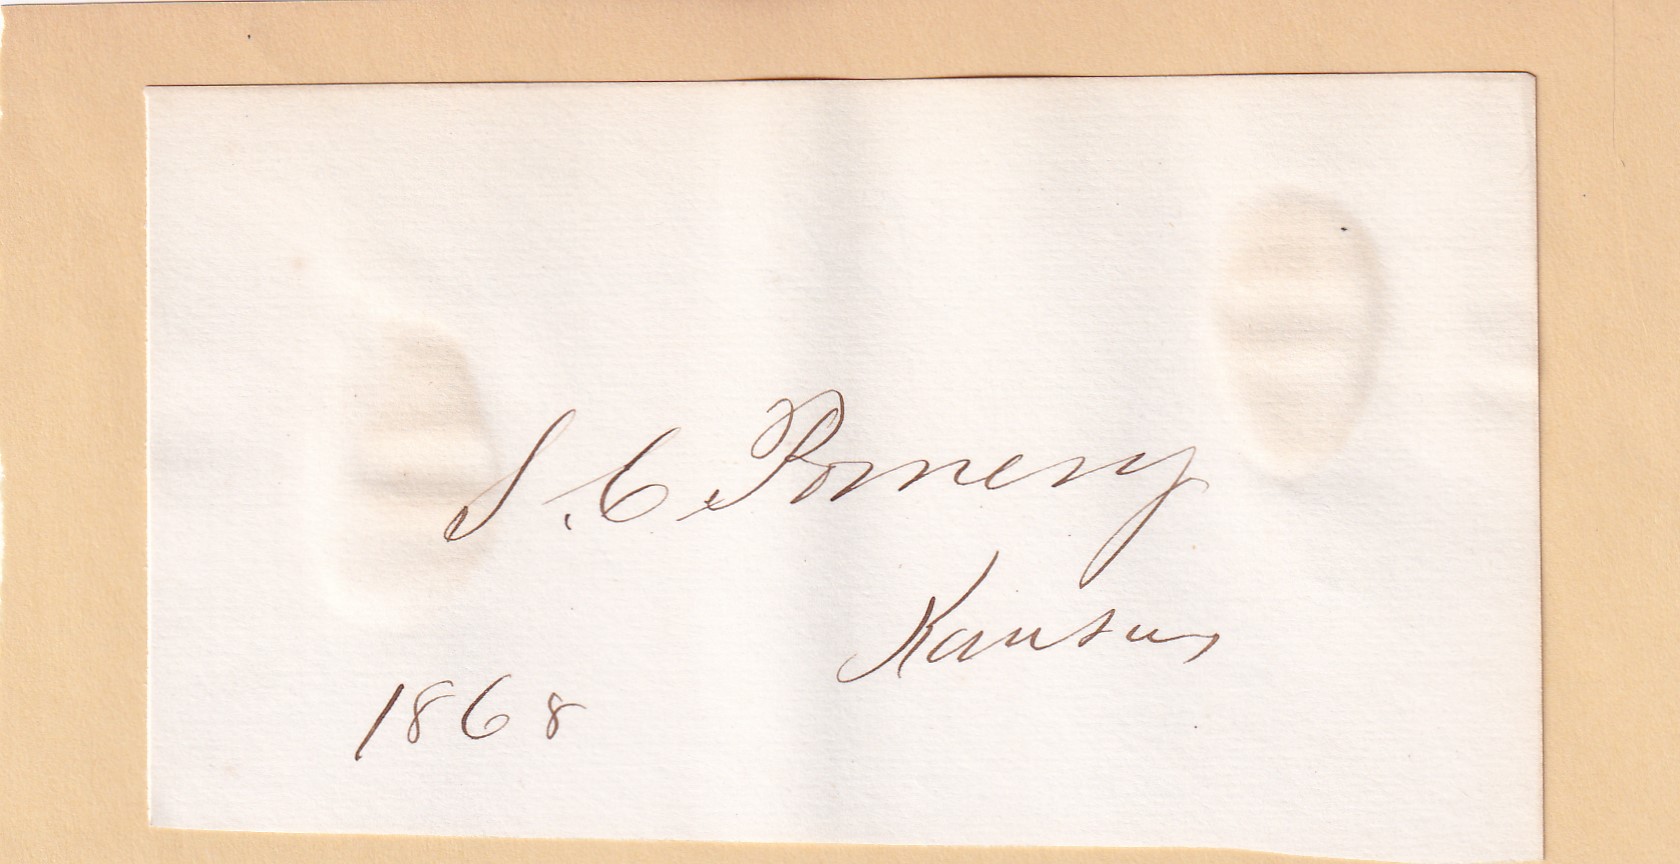 S. C. Pomeroy
Kansas
1868